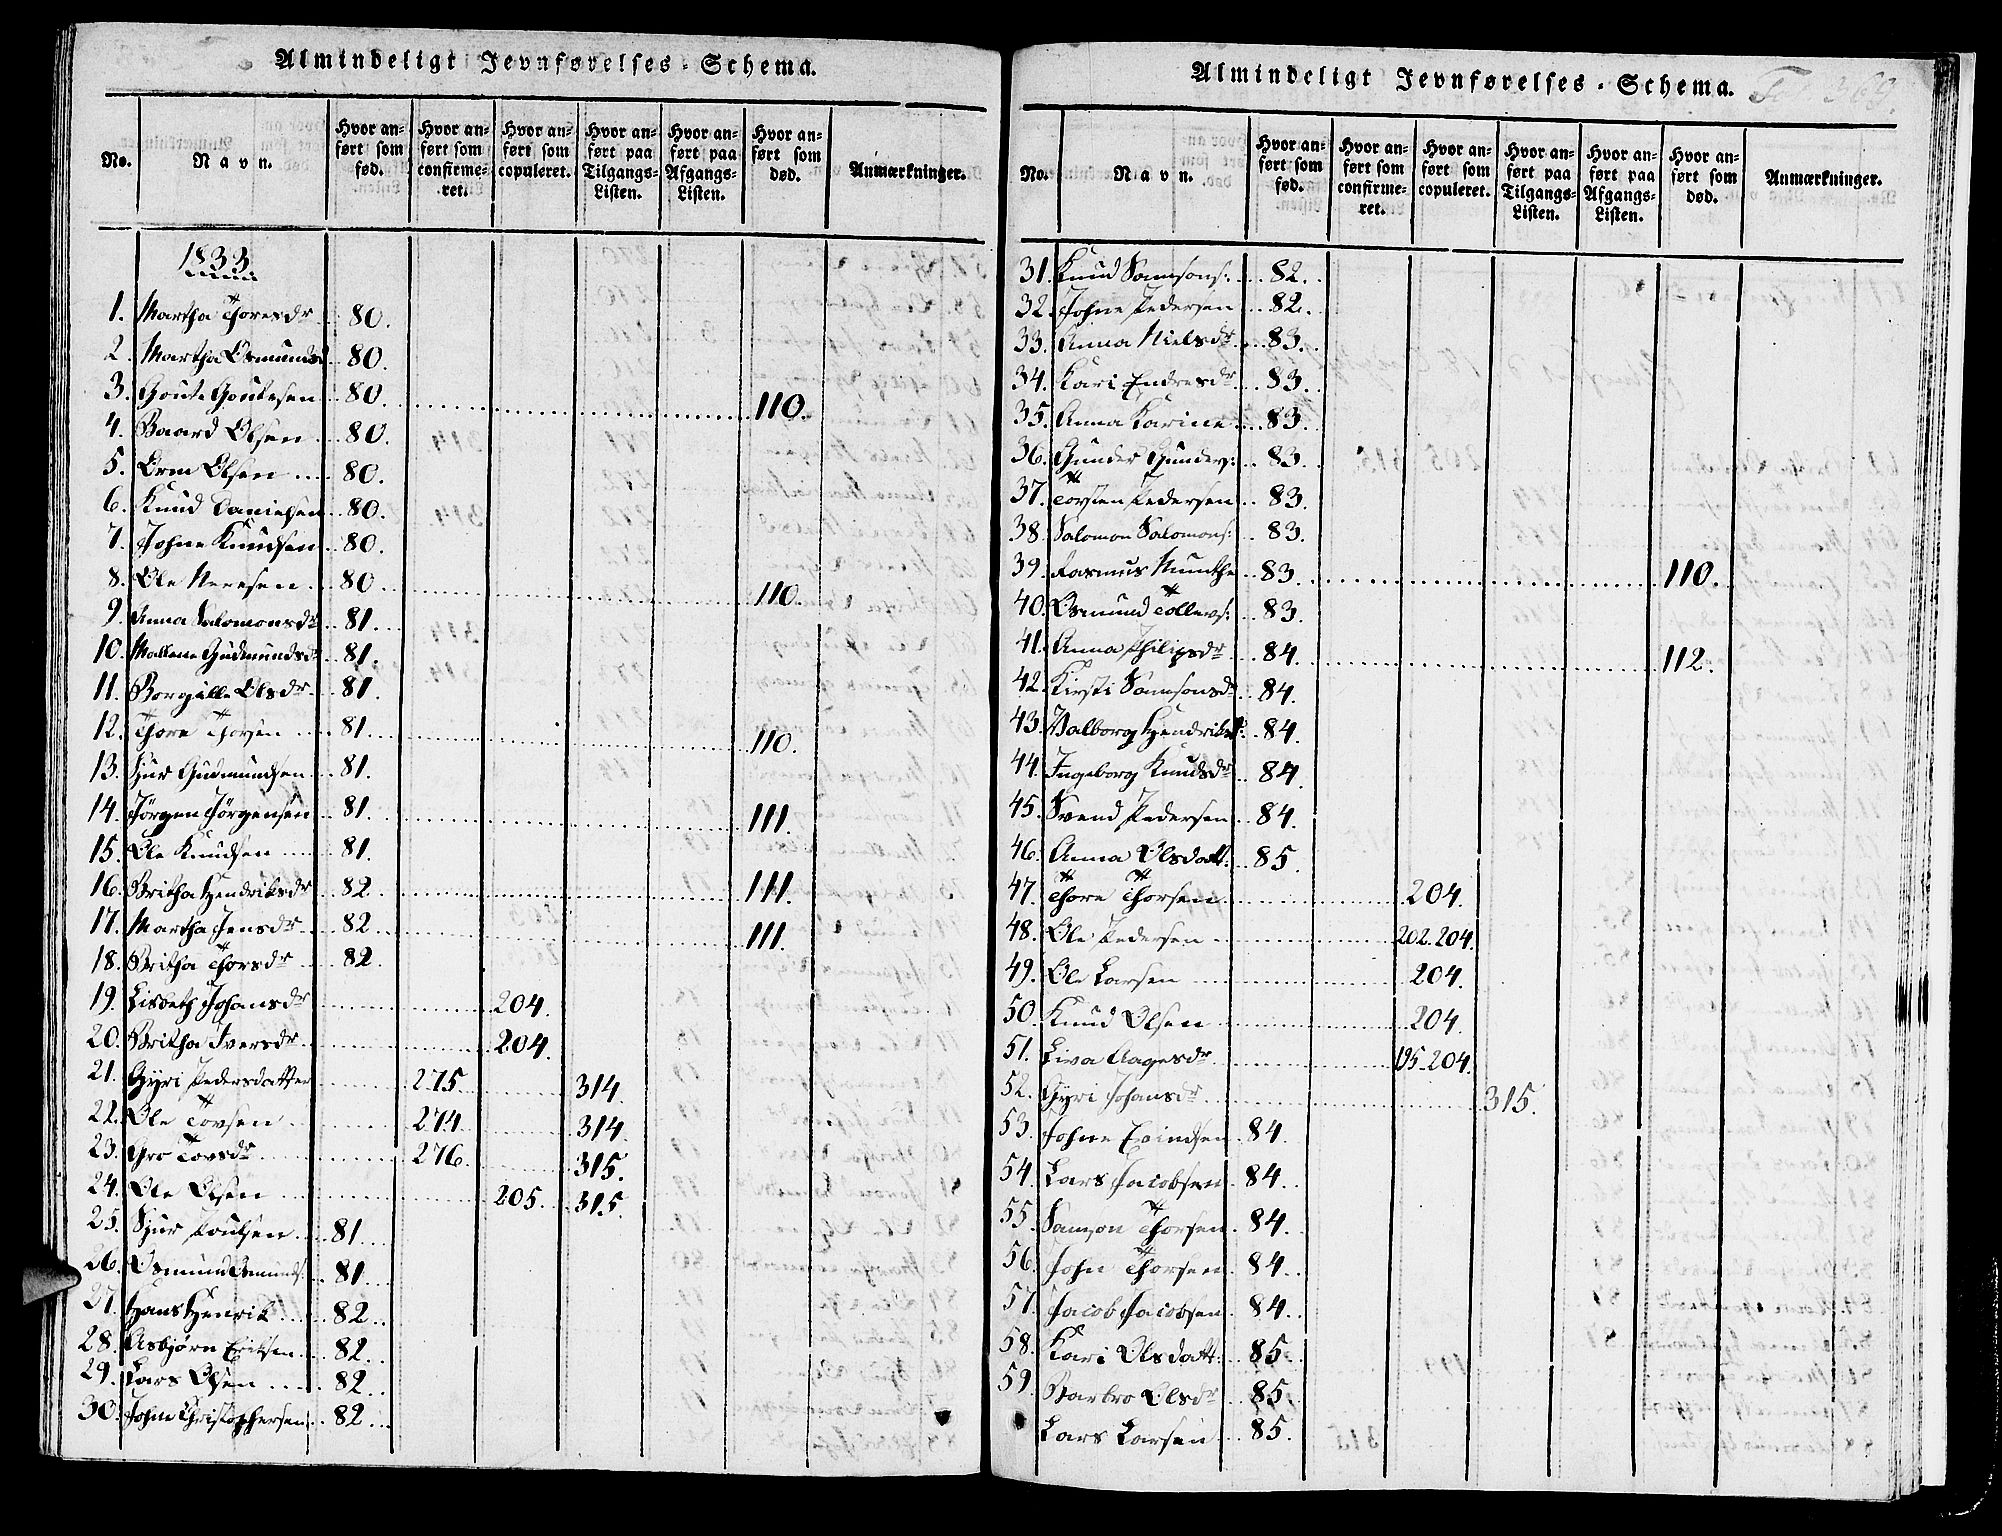 Almindeligt Jevnførelses-Schema.
No. Navn. Hvor anført som fød. Hvor anført som confirmeret. Hvor anført som copuleret. Hvor anført paa Tilgangs-Listen. Hvor anført paa Afgangs-Listen. Hvor anført som død. Anmærkninger.
1833
1. Martha Thoresdr 80.
2. Martha Osmundsd 80.
3. Goute Goutesen 80. 110.
4. Baard Olsen 80.
5. Orm Olsen 80.
6. Knud Danielsen 80.
7. Johne Knudsen 80.
8. Ole 80. 110.
9. Anna Salomonsdr 81.
10. Mallene Gudmundsdr 81.
11. Borgille Olsdr 81.
12. Thore Thorsen 81. 110.
13. Sjur Gudmundsen 81.
14. Jørgen Jørgensen 81. 111.
15. Ole Knudsen 81.
16. Britha Hendriksdr 82. 111.
17. Martha Jensdr 82. 111.
18. Britha Thorsdr 82.
19. Lisbeth Johansdr 204.
20. Britha Iversdr 204.
21. Gyri Pedersdatter 275. 314.
22. Ole Tovsen 274. 314.
23. Gro Tovsdr 276. 315.
24. Ole Olsen 205. 315.
25. Sjur Poulsen 81.
26. Osmund Osmunds: 81.
27. Hans Henrik 82.
28. Asbjørn Eriksen 82.
29. Lars Olsen 82.
30. John Christophersen 82.
Almindeligt Jevnførelses-Schema. Fol 369.
No. Navn. Hvor anført som fød. Hvor anført som confirmeret. Hvor anført som copuleret. Hvor anført paa Tilgangs-Listen. Hvor anført paa Afgangs-Listen. Hvor anført som død. Anmærkninger.
31. Knud Samsons: 82.
32. Johne Pedersen 82.
33. Anna Nielsdr 83.
34. Kari Endresdr 83.
35. Anna Karine 83.
36. Gunder Gunders: 83.
37. Torsten Pedersen 83.
38. Salomon Salomons: 83.
39. Rasmus Munthe 83. 110.
40. Osmund Tollevs: 83.
41. Anna Philipsdr 84. 112.
42. Kirsti Samsonsdr 84.
43. Valborg Hendriksd: 84.
44. Ingeborg Knudsdr 84.
45. Svend Pedersen 84.
46. Anna Olsdatt: 85.
47. Thore Thorsen 204.
48. Ole Pedersen 202.204.
49. Ole Larsen 204.
50. Knud Olsen 204.
51. Liva Aagesdr 195.204.
52. Gyri Johansdr 315.
53. Johne Evindsen 84.
54. Lars Jacobsen 84.
55. Samson Thorsen 84.
56. John Thorsen 84.
57. Jacob Jacobsen 84.
58. Kari Olsdatt: 85.
59. Barbro Olsdr 85.
Lars Larsen 85.